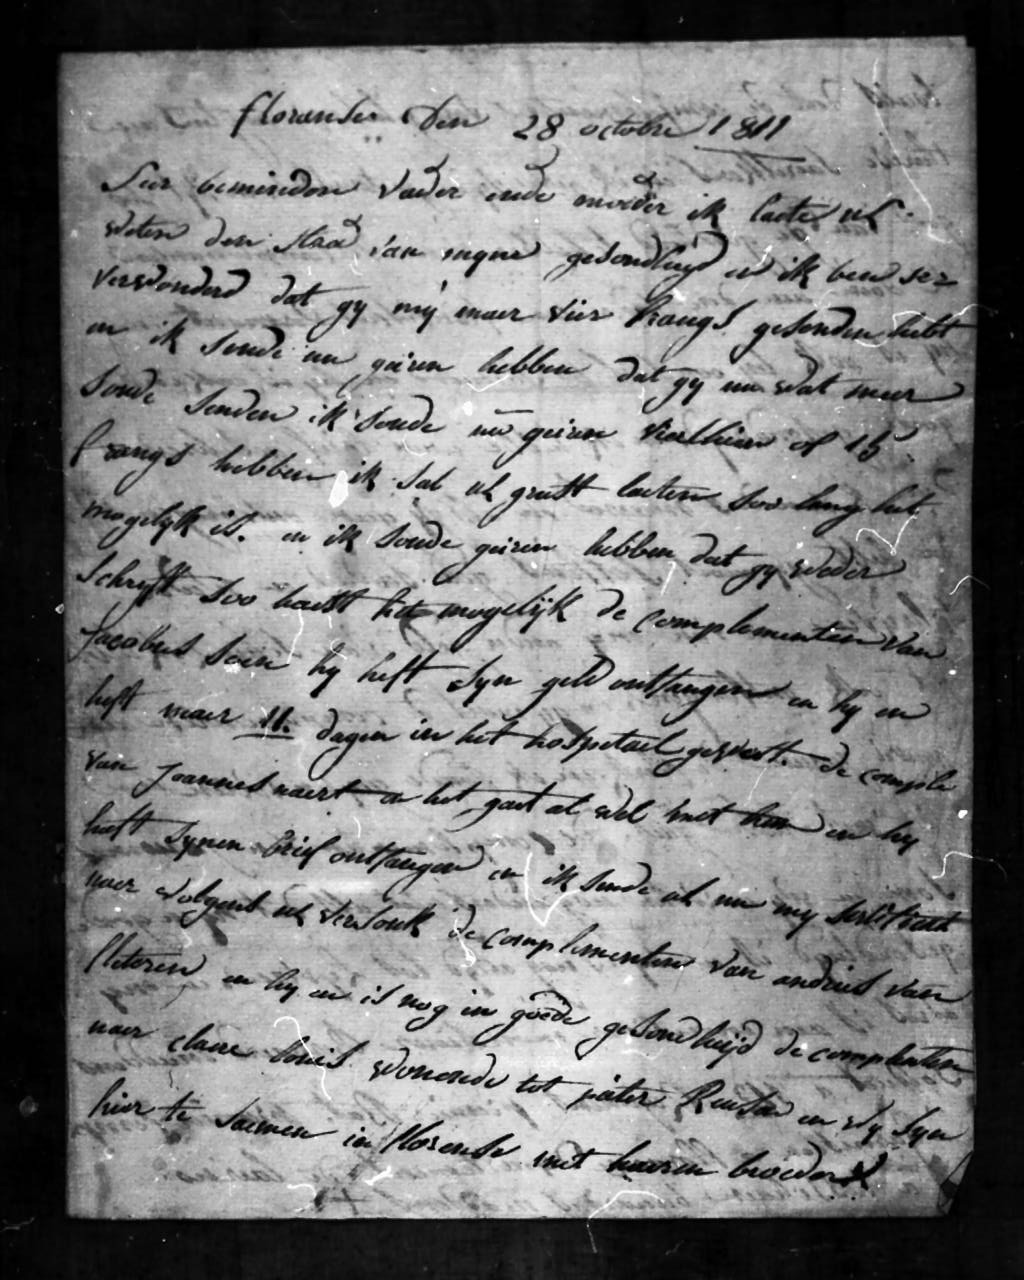 florensen Den 28 octobre 1811
Seer beminden Vader ende moeder ik laete ul.
weten den staa van myne gesondheyd en ik ben seer
verwonderd dat gy my maer vier frangs gesonden hebt
en ik soude nu geiren hebben dat gy nu wat meer
soude senden ik soude nu geiren vierthien of 15
frangs hebben ik sal ul gerust laeten soo lang het
mogelyk is. en ik soude geiren hebben dat gy weder
schryft soo haest het mogelyk de complementen van
Jacobus soen hy heft syn geld ontfangen en hy en
heft maer 11. dagen in het hospetael geweest. de comple
van joannes naert en het gaet al wel met hem en hy
heeft synen brief ontfangen en ik sende ul nu my sertifikaet
naer volgens ul versouk de complementen van andries van
fleteren en hy en is nog in goede gesondheyd de complementen
naer claere wonende tot pieter en wy syn
hier te saemen in florensen met haeren broeder